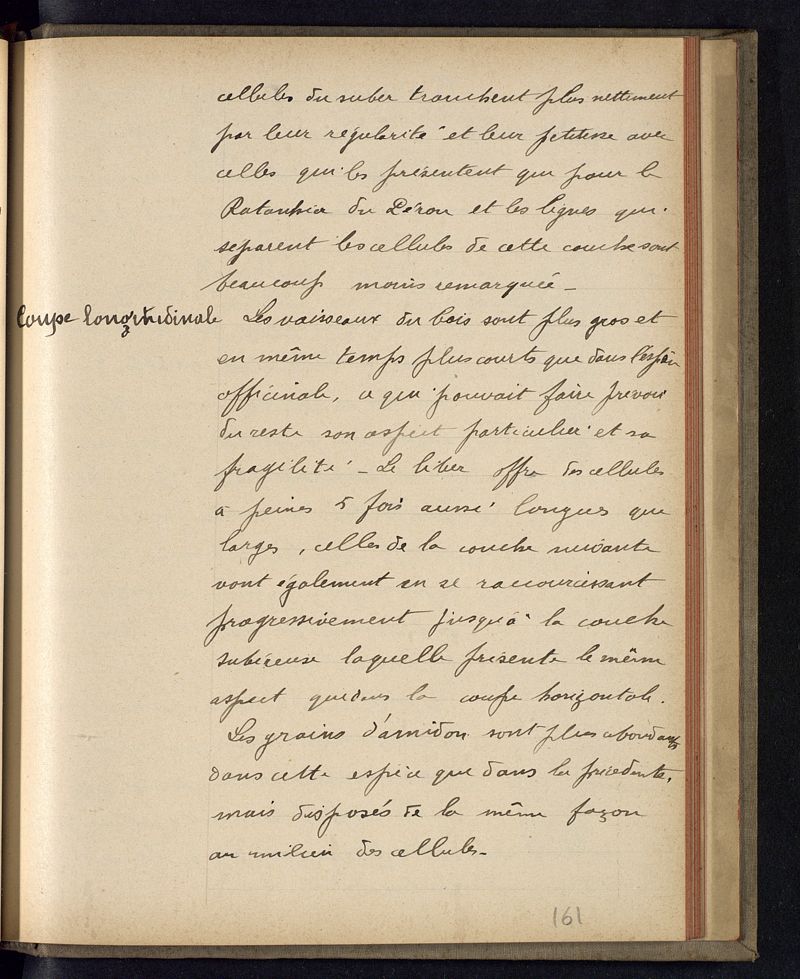 cellules du suber tranchent plus nettement
par leur régularité et leur petitesse avec
celles qui les présentent que pour le
Ratanhia du Pérou et les lignes qui
separent les cellules de cette couche sont
beaucoup moins remarquée _
Coupe longitudinale Les vaisseaux du bois sont plus gros et
en même temps plus courts que dans l'espèce
officinale, ce qui pouvait faire prévoir
du reste son aspect particulier et sa
fragilité _ Le liber offre des cellules
à peines 5 fois aussi longues que
larges, celles de la couche suivante
vont également en se raccourcissant
progressivement jusqu'à la couche
subéreuse laquelle présente le même
aspect que dans la coupe horizontale.
Les grains d'amidon sont plus abondants
dans cette espèce que dans la précédente,
mais disposés de la même façon
au milieu des cellules _
161